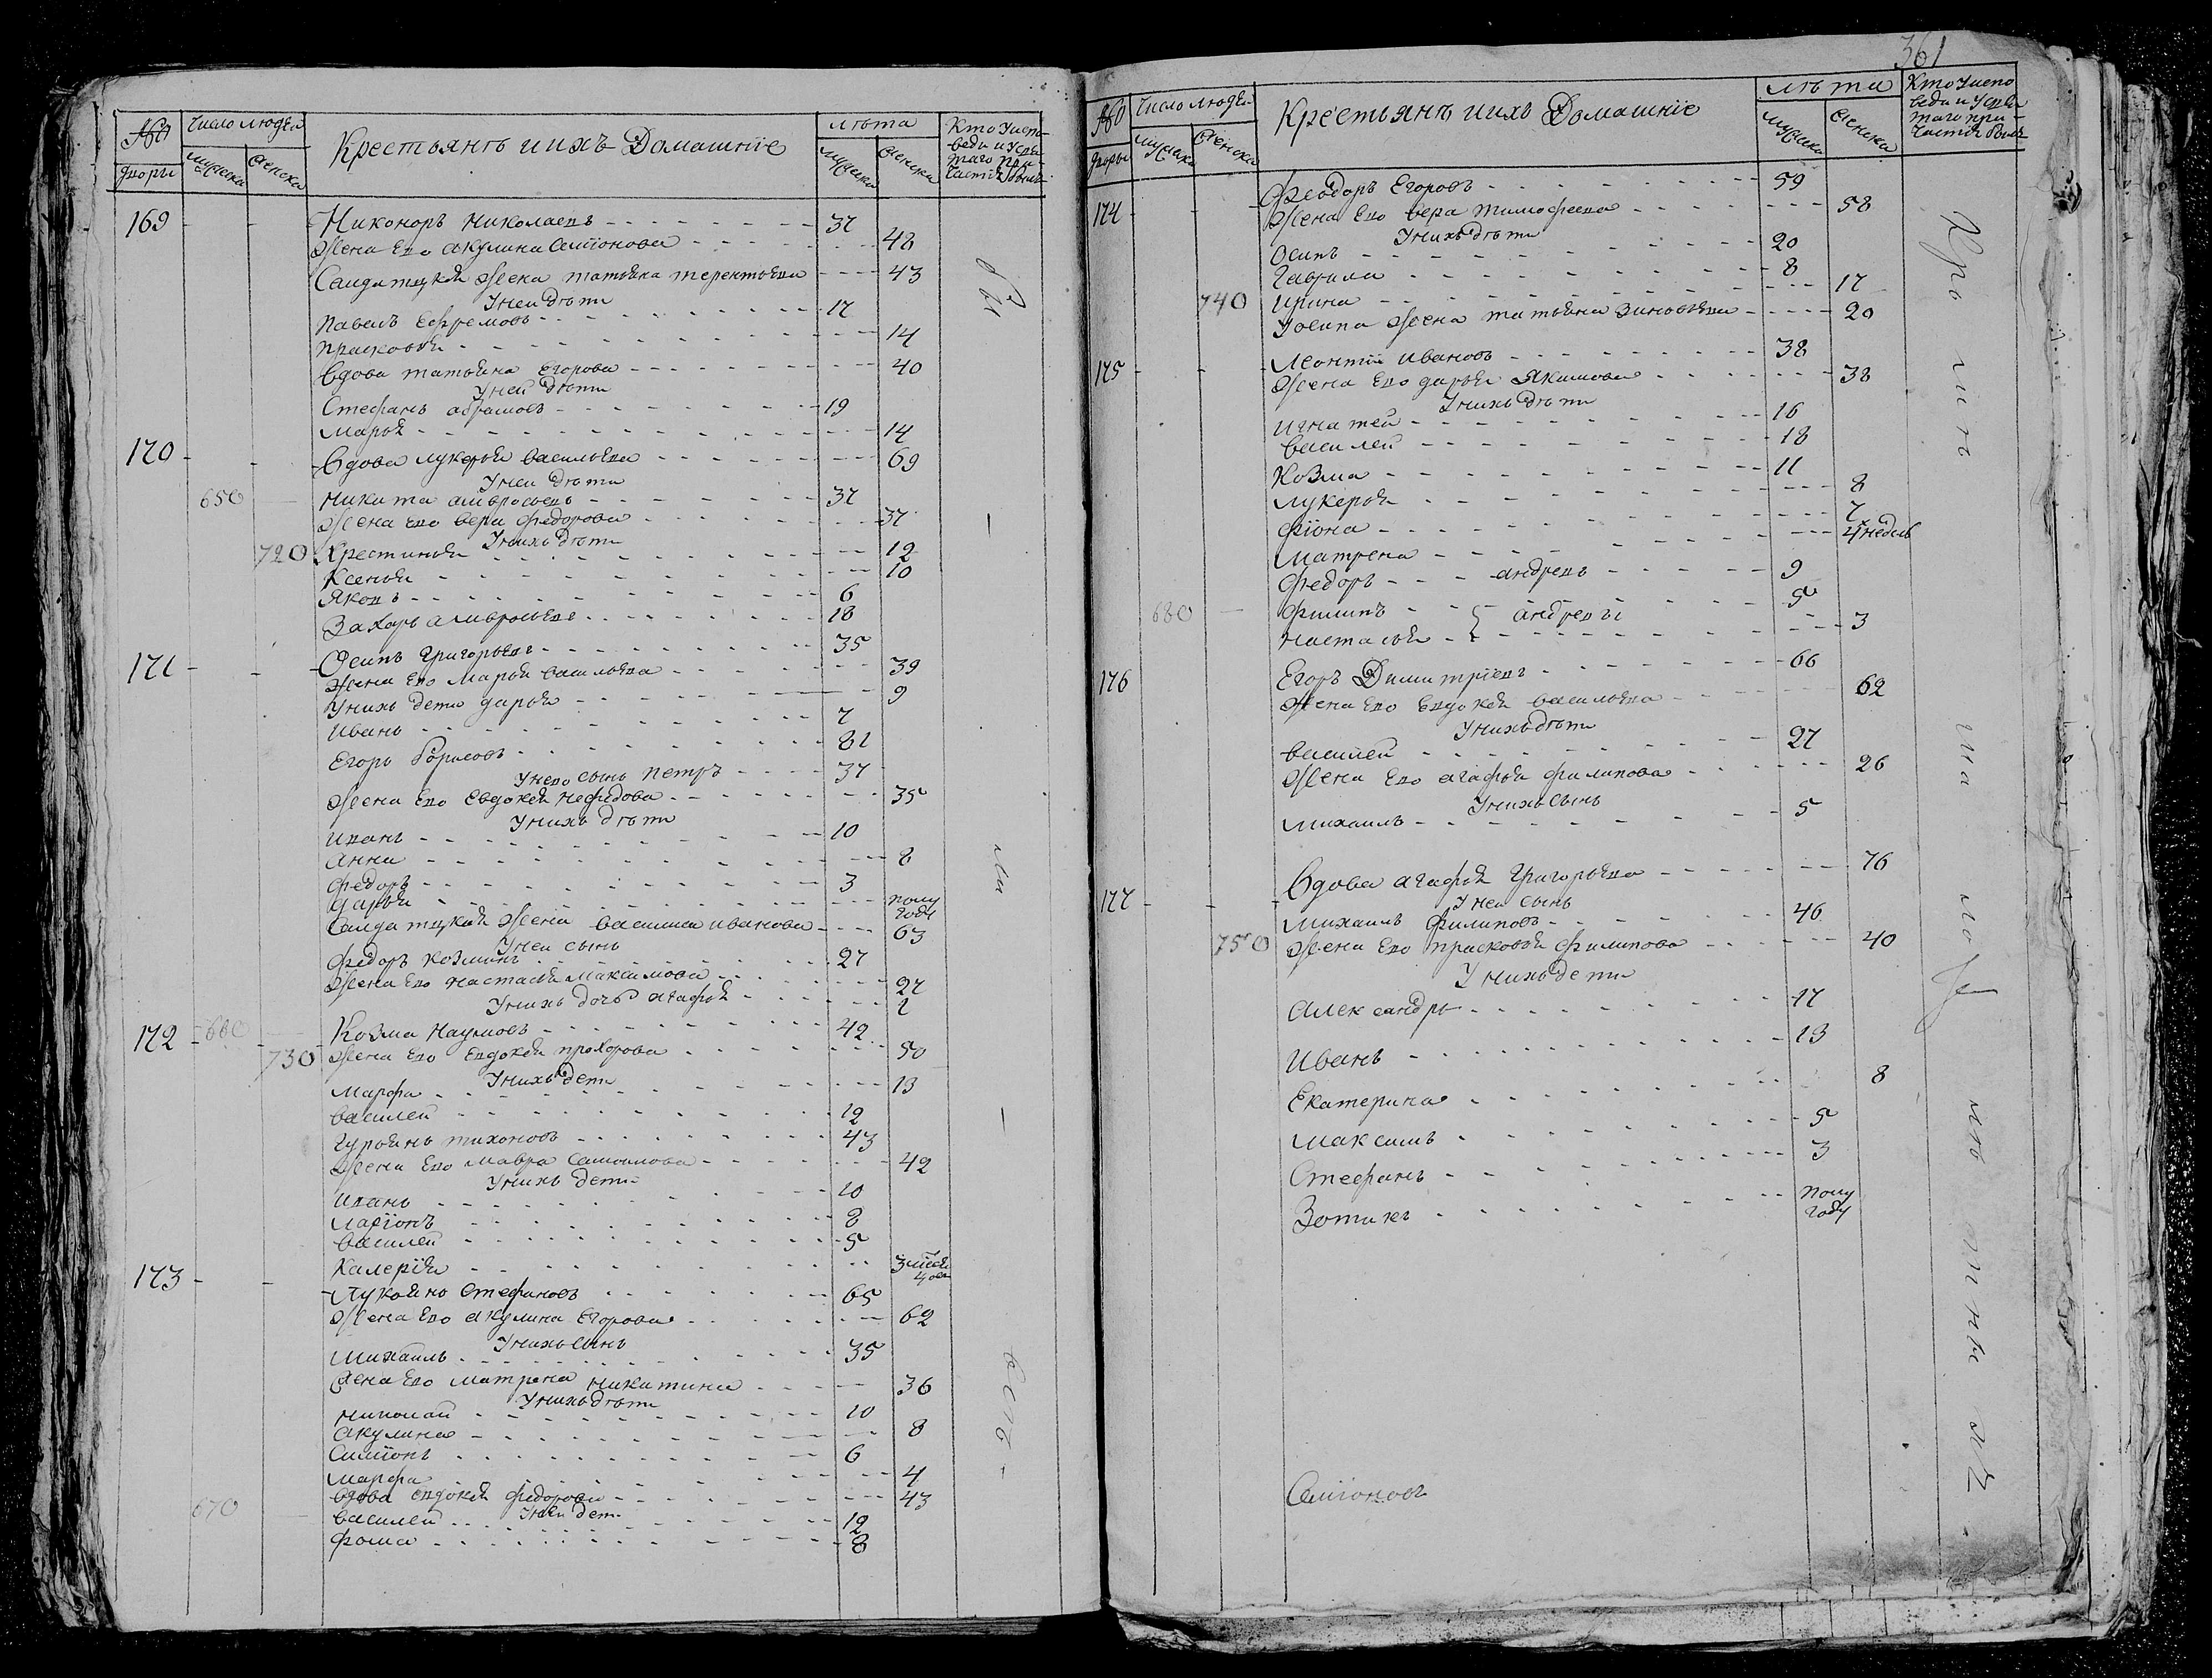 № Число людей Крестьянъ и ихъ Домашніе лѣта Кто У испо-
дворы мужска женска мужска женска веди и У свя-
таго при-
частія былъ
169 Никоноръ Николаевъ 37
Жена Ево акулина Симіонова 48
Салдатцкая жена татьяна терентьева 43
У неи дѣти
Павелъ Ефремовъ 17
Прасковья 14
Вдова татьяна Егорова 40
У ней дѣти
Стефанъ абрамовъ 19
Марья 14
170 Вдова лукерья васильева 69
У неи дѣти
650 Никита амвросьевъ 37
жена Ево вера федорова 37
У нихъ дѣти
720 Хрестинья 12
Ксенья 10
Яковъ 6
Захаръ амвросьевъ 18
171 Осипъ Григорьевъ 35
жена Ево Марья васильева 39
У нихъ дети дарья 9
Иванъ 7
Егоръ Борисовъ 81
У нево сынъ Петръ 37
жена Ево Евдокея нефедова 35
У нихъ дѣти
Иванъ 10
Анна 8
Федоръ 3
дарья полу году
Салдатцкая жена василиса иванова 63
У неи сынъ
Федоръ козминъ 27
жена Ево настасья Максимова 27
У нихъ дочь агафья 2
172 660 Козма Наумовъ 42
730 жена Ево Евдокея прохорова 50
У нихъ дети
Марфа 13
василей 12
Гурьянъ тихоновъ 43
жена Ево Мавра Самоилова 42
У нихъ дети
Иванъ 10
Ларіонъ 8
василей 5
Калерія 3
173 Лукьянъ Стефановъ 65
жена Ево акулина Егорова 62
У нихъ сынъ
Михаилъ 35
жена Ево матрена никитина 36
У нихъ дѣти
Николай 10
Акулина 8
Симіонъ 6
Марфа 4
вдова евдокея федорова 43
У неи дети
670 василей 12
Фома 8
361
№ Число людей Крестьянъ и ихъ Домашніе лѣта Кто У испо-
дворы мужска женска мужска женска веди и У свя-
таго при-
частія былъ
174 Феодоръ Егоровъ 59
жена Ево вера тимофеева 58
У нихъ дѣти
Осипъ 20
Гаврила 8
740 Ирина 17
У осипа жена татьяна зиновьева 20
175 Леонтій ивановъ 38
жена Ево дарья Якимова 38
У нихъ дѣти
Игнатей 16
василей 18
Козма 11
Лукерья 8
Фіона 7
Матрена 4 недель
Федоръ андреевъ 9
680 Филипъ андреевы 5
Настасья 3
176 Егоръ Димитріевъ 66
жена Ево Евдокея васильева 62
У нихъ дѣти
василей 27
жена Ево агафья филипова 26
У нихъ сынъ
Михаилъ 5
177 Вдова агафья Григорьева 76
У неи сынъ
Михаилъ филиповъ 46
750 жена Ево прасковья филипова 40
У нихъ дети
Александръ 17
Иванъ 13
Екатерина 8
Максимъ 5
Стефанъ 3
Зотикъ полу году
Симіоновъ